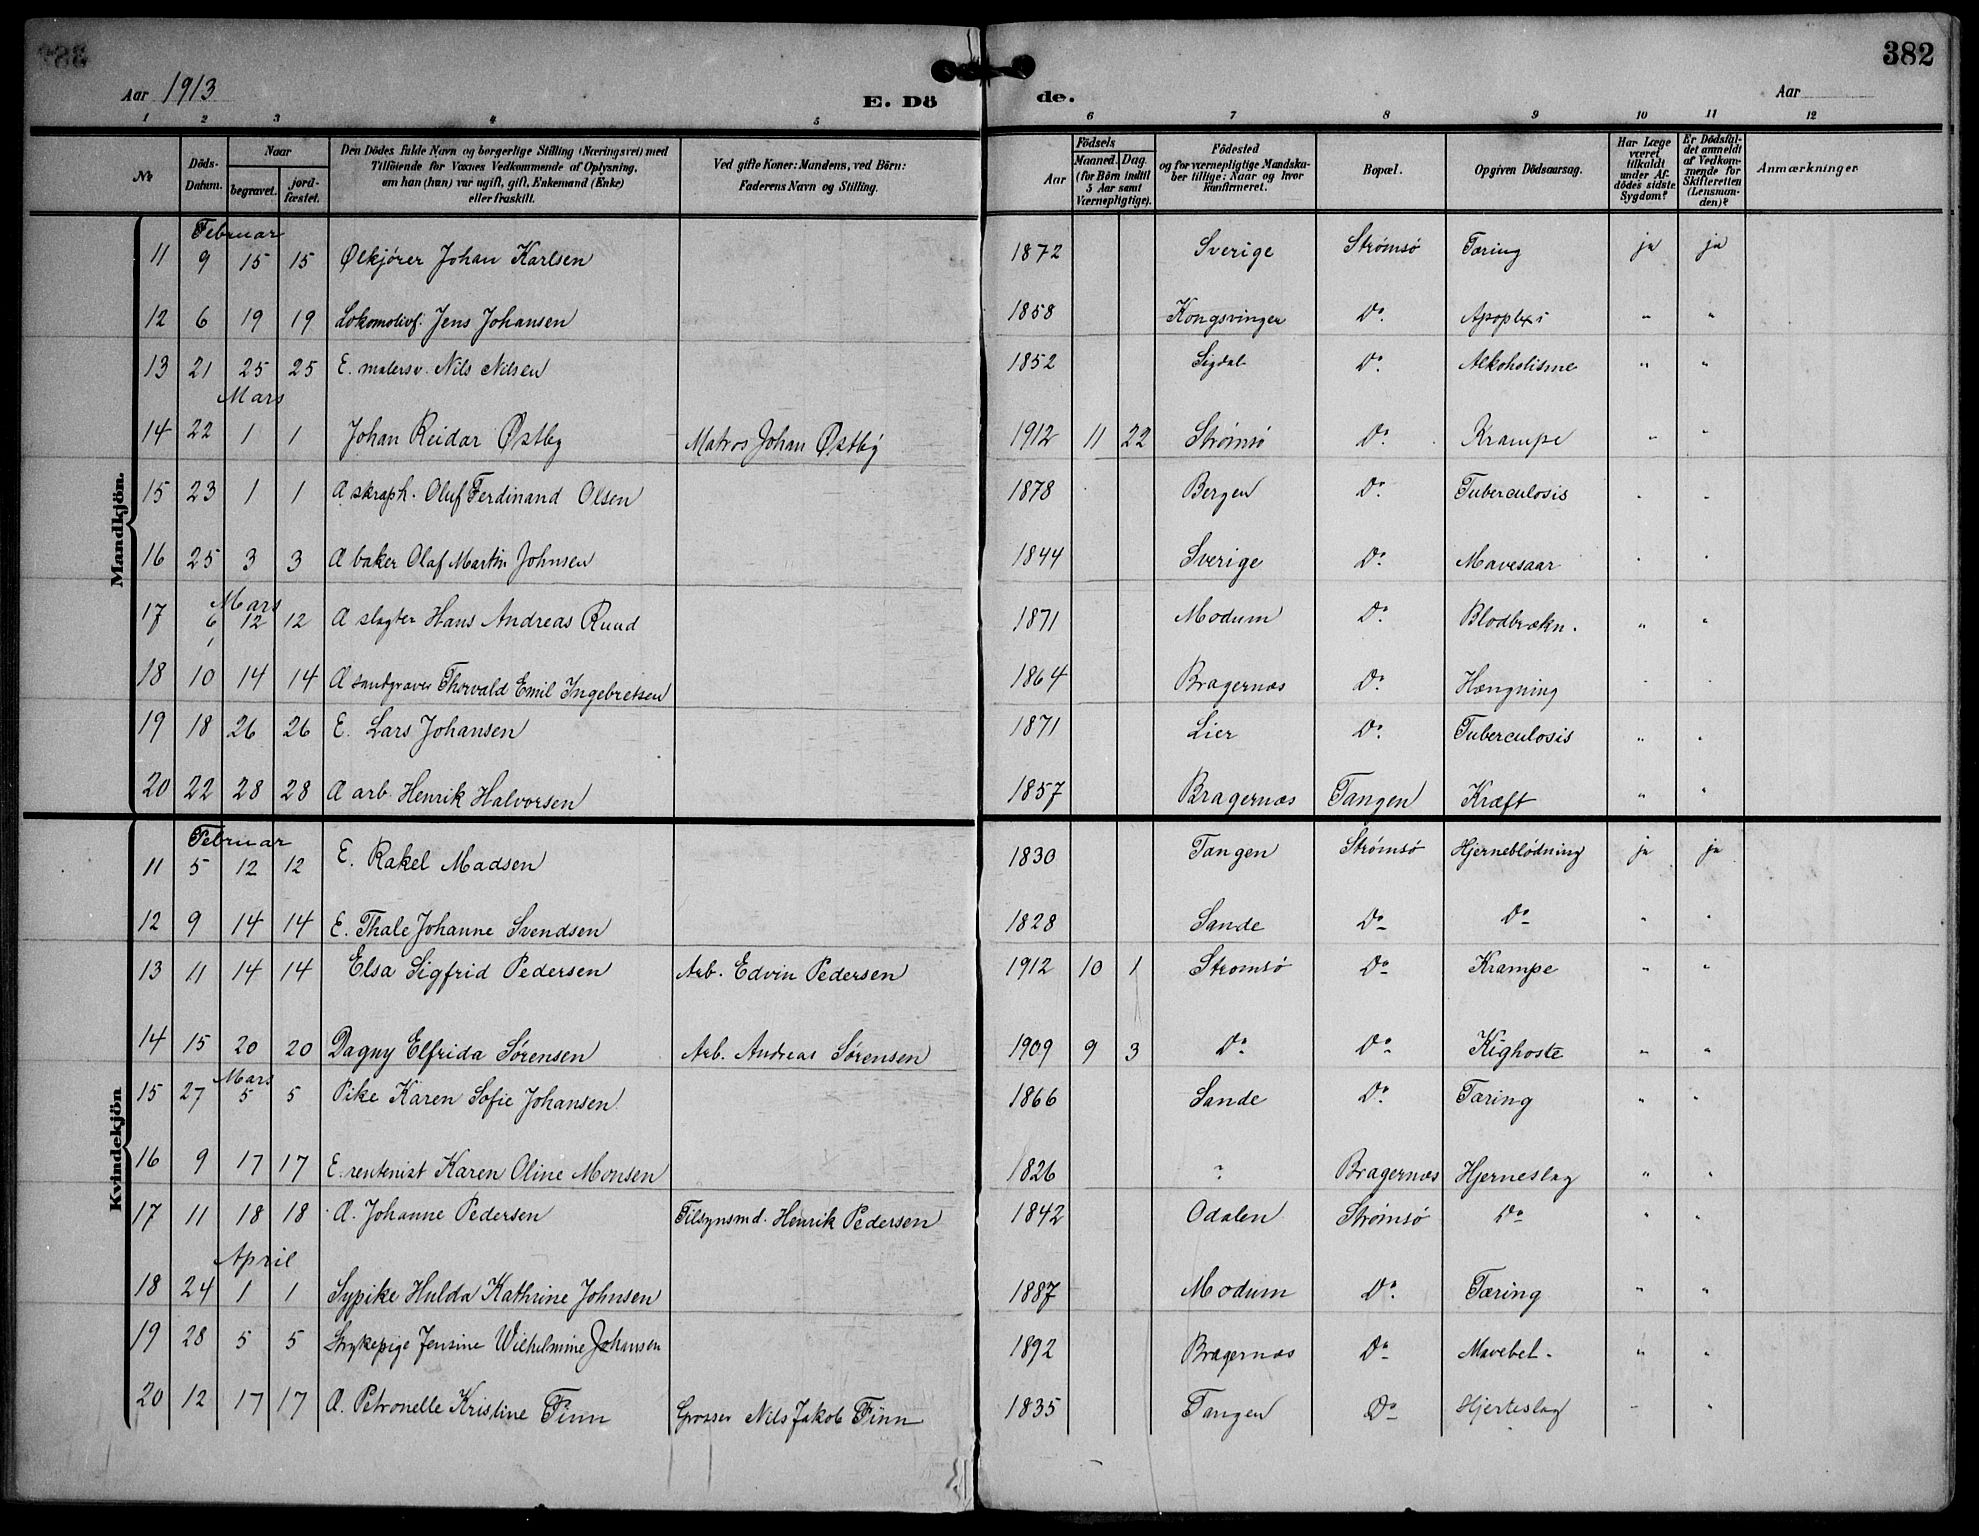 382
Aar 1913
E. Dö de.
Aar
1 2 3 4 5 6 7 8 9 10 11 12
No
Döds-Datum.
Naar
begravet.
jord-fæstet.
Den Dödes fulde Navn og borgerlige Stilling (Næringsvei) med
Tilföiende for Voxnes Vedkommende af Oplysning,
om han (hun) var ugift, gift, Enkemand (Enke)
eller fraskilt.
Ved gifte Koner: Mandens, ved Börn:
Faderens Navn og Stilling.
Aar
Födsels
Maaned. Dag.
(for Börn indtil
5 Aar samt
Værnepligtige).
Födested
og for værnepligtige Mandska-
ber tillige: Naar og hvor
konfirmeret.
Bopæl.
Opgiven Dödsaarsag.
Har Læge
været
tilkaldt
under Af-
dödes sidste
Sygdom?
Er Dödsfal-
det anmeldt
af Vedkom-
mende for
Skifteretten
(Lensman-
den)?
Anmærkninger.
Mandkjön.
Februar
11 9 15 15 Ølkjører Johan Karlsen 1872 Sverige Strømsö Tæring ja ja
12 6 19 19 Lokomotivf. Jens Johansen 1858 Kongsvinger Do. Apoplexi " "
13 21 25 25 E. malersv. Nils Nilsen 1852 Sigdal Do. Alkoholisme " "
Mars
14 22 1 1 Johan Reidar Østby Matros Johan Østby 1912 11 22 Strømsö Do. Krampe " "
15 23 1 1 A skraph. Oluf Ferdinand Olsen 1878 Bergen Do. Tuberculosis " "
16 25 3 3 A baker Olaf Martin Johnsen 1844 Sverige Do. Mavesaar " "
Mars
17 6 12 12 A slagter Hans Andreas Ruud 1871 Modum Do. Blodbrækn. " "
18 10 14 14 A sandgraver Thorvald Emil Ingebretsen 1864 Bragernæs Do. Hængning " "
19 18 26 26 E. Lars Johansen 1871 Lier Do. Tuberculosis " "
20 22 28 28 A arb. Henrik Halvorsen 1857 Bragernæs Tangen Kræft " "
Kvindekjön
Februar
11 5 12 12 E. Rakel Madsen 1830 Tangen Strømsö Hjerneblödning ja ja
12 9 14 14 E. Thale Johanne Svendsen 1828 Sande Do Do " "
13 11 14 14 Elsa Sigfrid Pedersen Arb. Edvin Pedersen 1912 10 1 Strømsö Do Krampe " "
14 15 20 20 Dagny Elfrida Sørensen Arb. Andreas Sørensen 1909 9 3 Do Do Kighoste " "
Mars
15 27 5 5 Pike Karen Sofie Johansen 1866 Sande Do. Tæring " "
16 9 17 17 E. rentenist Karen Oline Monsen 1826 ? Bragernæs Hjerneslag " "
17 11 18 18 A. Johanne Pedersen Tilsynsmd. Henrik Pedersen 1842 Odalen Strømsö Do " "
April
18 24 1 1 Sypike Hulda Kathrine Johnsen 1887 Modum Do. Tæring " "
19 28 5 5 Strykepige Jensine Wilhelmine Johansen 1892 Bragernæs Do Mavebet. " "
20 12 17 17 A. Petronelle Kristine Finn Grosser Nils Jakob Finn 1835 Tangen Do Hjerteslag " "